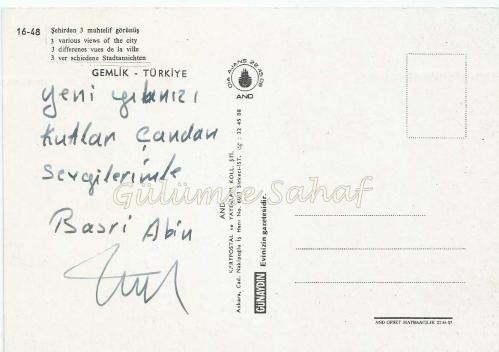 16-48
Şehirden 3 muhtelif görünüş
3 various views of the city
3 differenes vues de la ville
3 ver schiedene Stadtansichten
GEMLİK - TÜRKİYE
Yeni yılınızı
Kutlar Candan
Sevgilerimle
Basri Abin
Gülümse Sahaf
AND
AND
KARTPOSTAL ve YAYINLARI KOLL. ŞTİ.
Ankara, Cad. Nakipoğlu İş Hanı No: Sirkeci-İST. 22 45 08
GÜNAYDIN
Evinizin gazetesidir.
AND OFSET MATBAACILIK